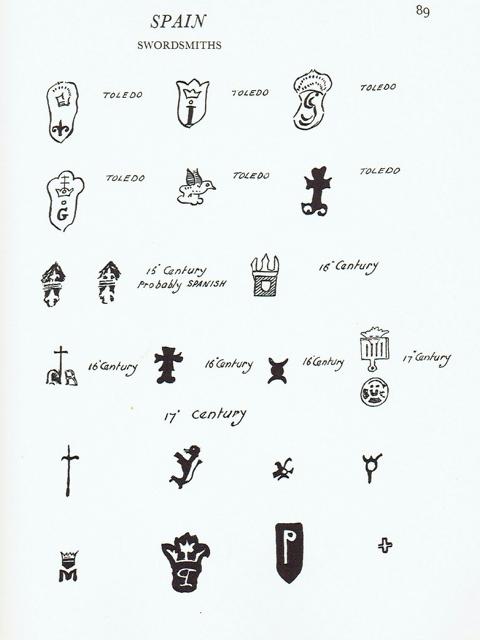 89
SPAIN
SWORDSMITHS
TOLEDO
i
TOLEDO
S
TOLEDO
G
TOLEDO
TOLEDO
TOLEDO
15° Century
Probably SPANISH
16° Century
16° Century
16° Century
16° Century
17° Century
17° Century
M
P